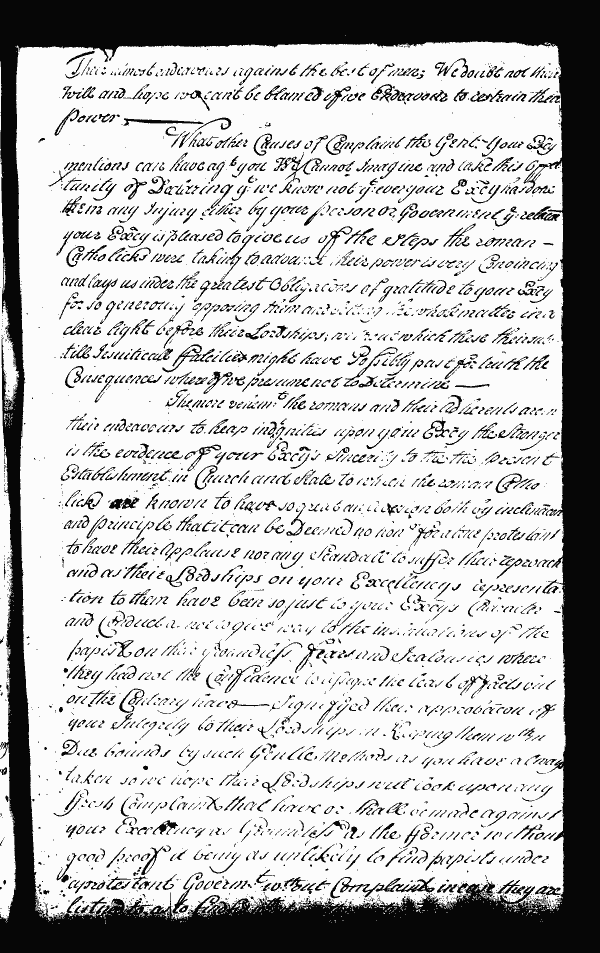 Their utmost endeavours against the best of men; We doubt not their
Will and hope we can't be blamed if we Endeavour to restrain their
Power
What other Causes of Complaint the Gent. Your Excy
mentions can have agt you We Cannot Imagine and take this Oppor
tunity of Declaring yt we know not yt ever your Excy has done
them any Injury either by your person or Government yt relation
your Excy is pleased to give us of the steps the roman
Catholicks were taking to advance their power is very Convincing
and lays us under the greatest Obligations of gratitude to your Excy
for so generously opposing them and setting the whole matter in a
clear light before their Lordships, without which these
till Jesuiticall might have Possibly past for truth the
Consequences whereof we presume not to Determine
The more vehemt the romans and their adherents are in
their endeavours to heap indignities upon your Excy the stronger
is the evidence of your Excys Sincerity to the present
Establishment in Church and State to which the roman Catho
licks are known to have so great an aversion both by inclination
and principle that it can be Deemed no for a true protestant
to have their Applause nor any Scandall to suffer their reproach
and as their Lordships on your Excellencys representa
tion to them have been so just to your Excys Character
and Conduct as not to give way to the insinuations of the
papists on their groundless fears and Jealousies where
they had not the Confidence to the least of facts but
on the Contrary have Signifyed their approbation of
your Integrity to their Lordships in Keeping them wthin
Due bounds by such Gentle Methods as you have alway
taken so we hope their Lordships will look upon any
fresh Complaints that have or shall be made against
your Excellency as Groundless as the former without
good proof it being as unlikely to find papists under
a protestant Governmt without Complaint in case they are
listned to as to find